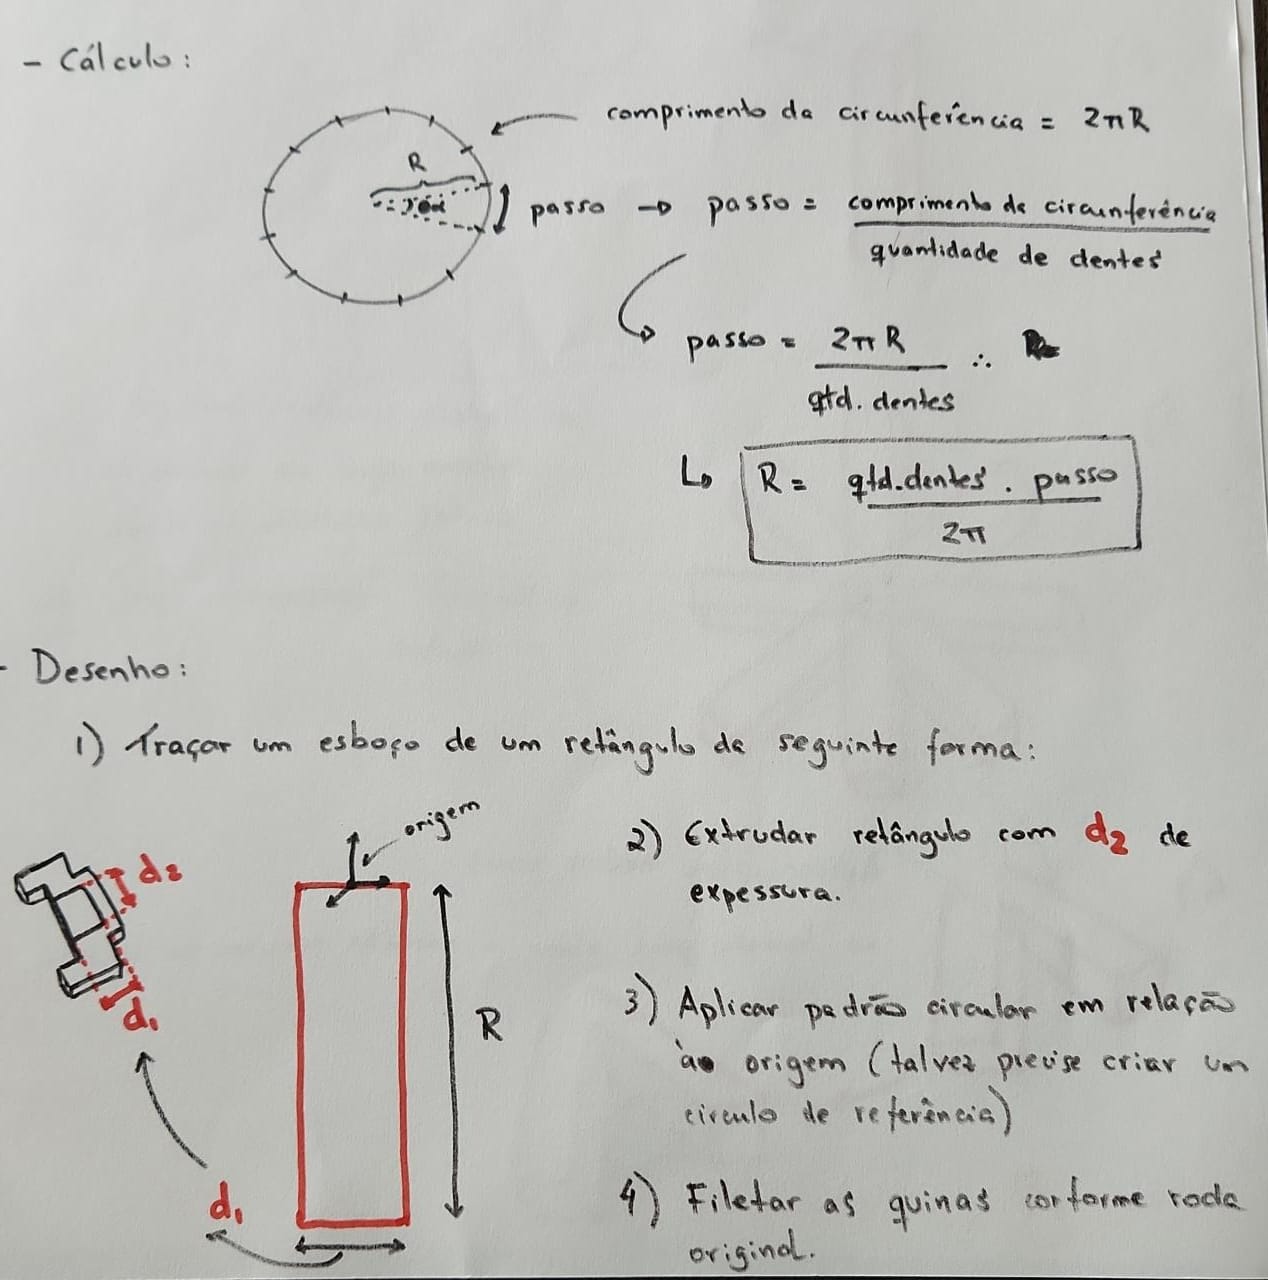 - Cálculo:
comprimento da circunferência = 2πR
R
passo → passo = comprimento da circunferência
quantidade de dentes
passo = 2πR ∴
qtd. dentes
R = qtd.dentes . passo
2π
- Desenho:
1) Traçar um esboço de um retângulo da seguinte forma:
origem
d2
d1
R
d1
2) Extrudar retângulo com d2 de
expessura.
3) Aplicar padrão circular em relação
ào origem (talvez precise criar um
círculo de referência)
4) Filetar as quinas conforme roda
original.